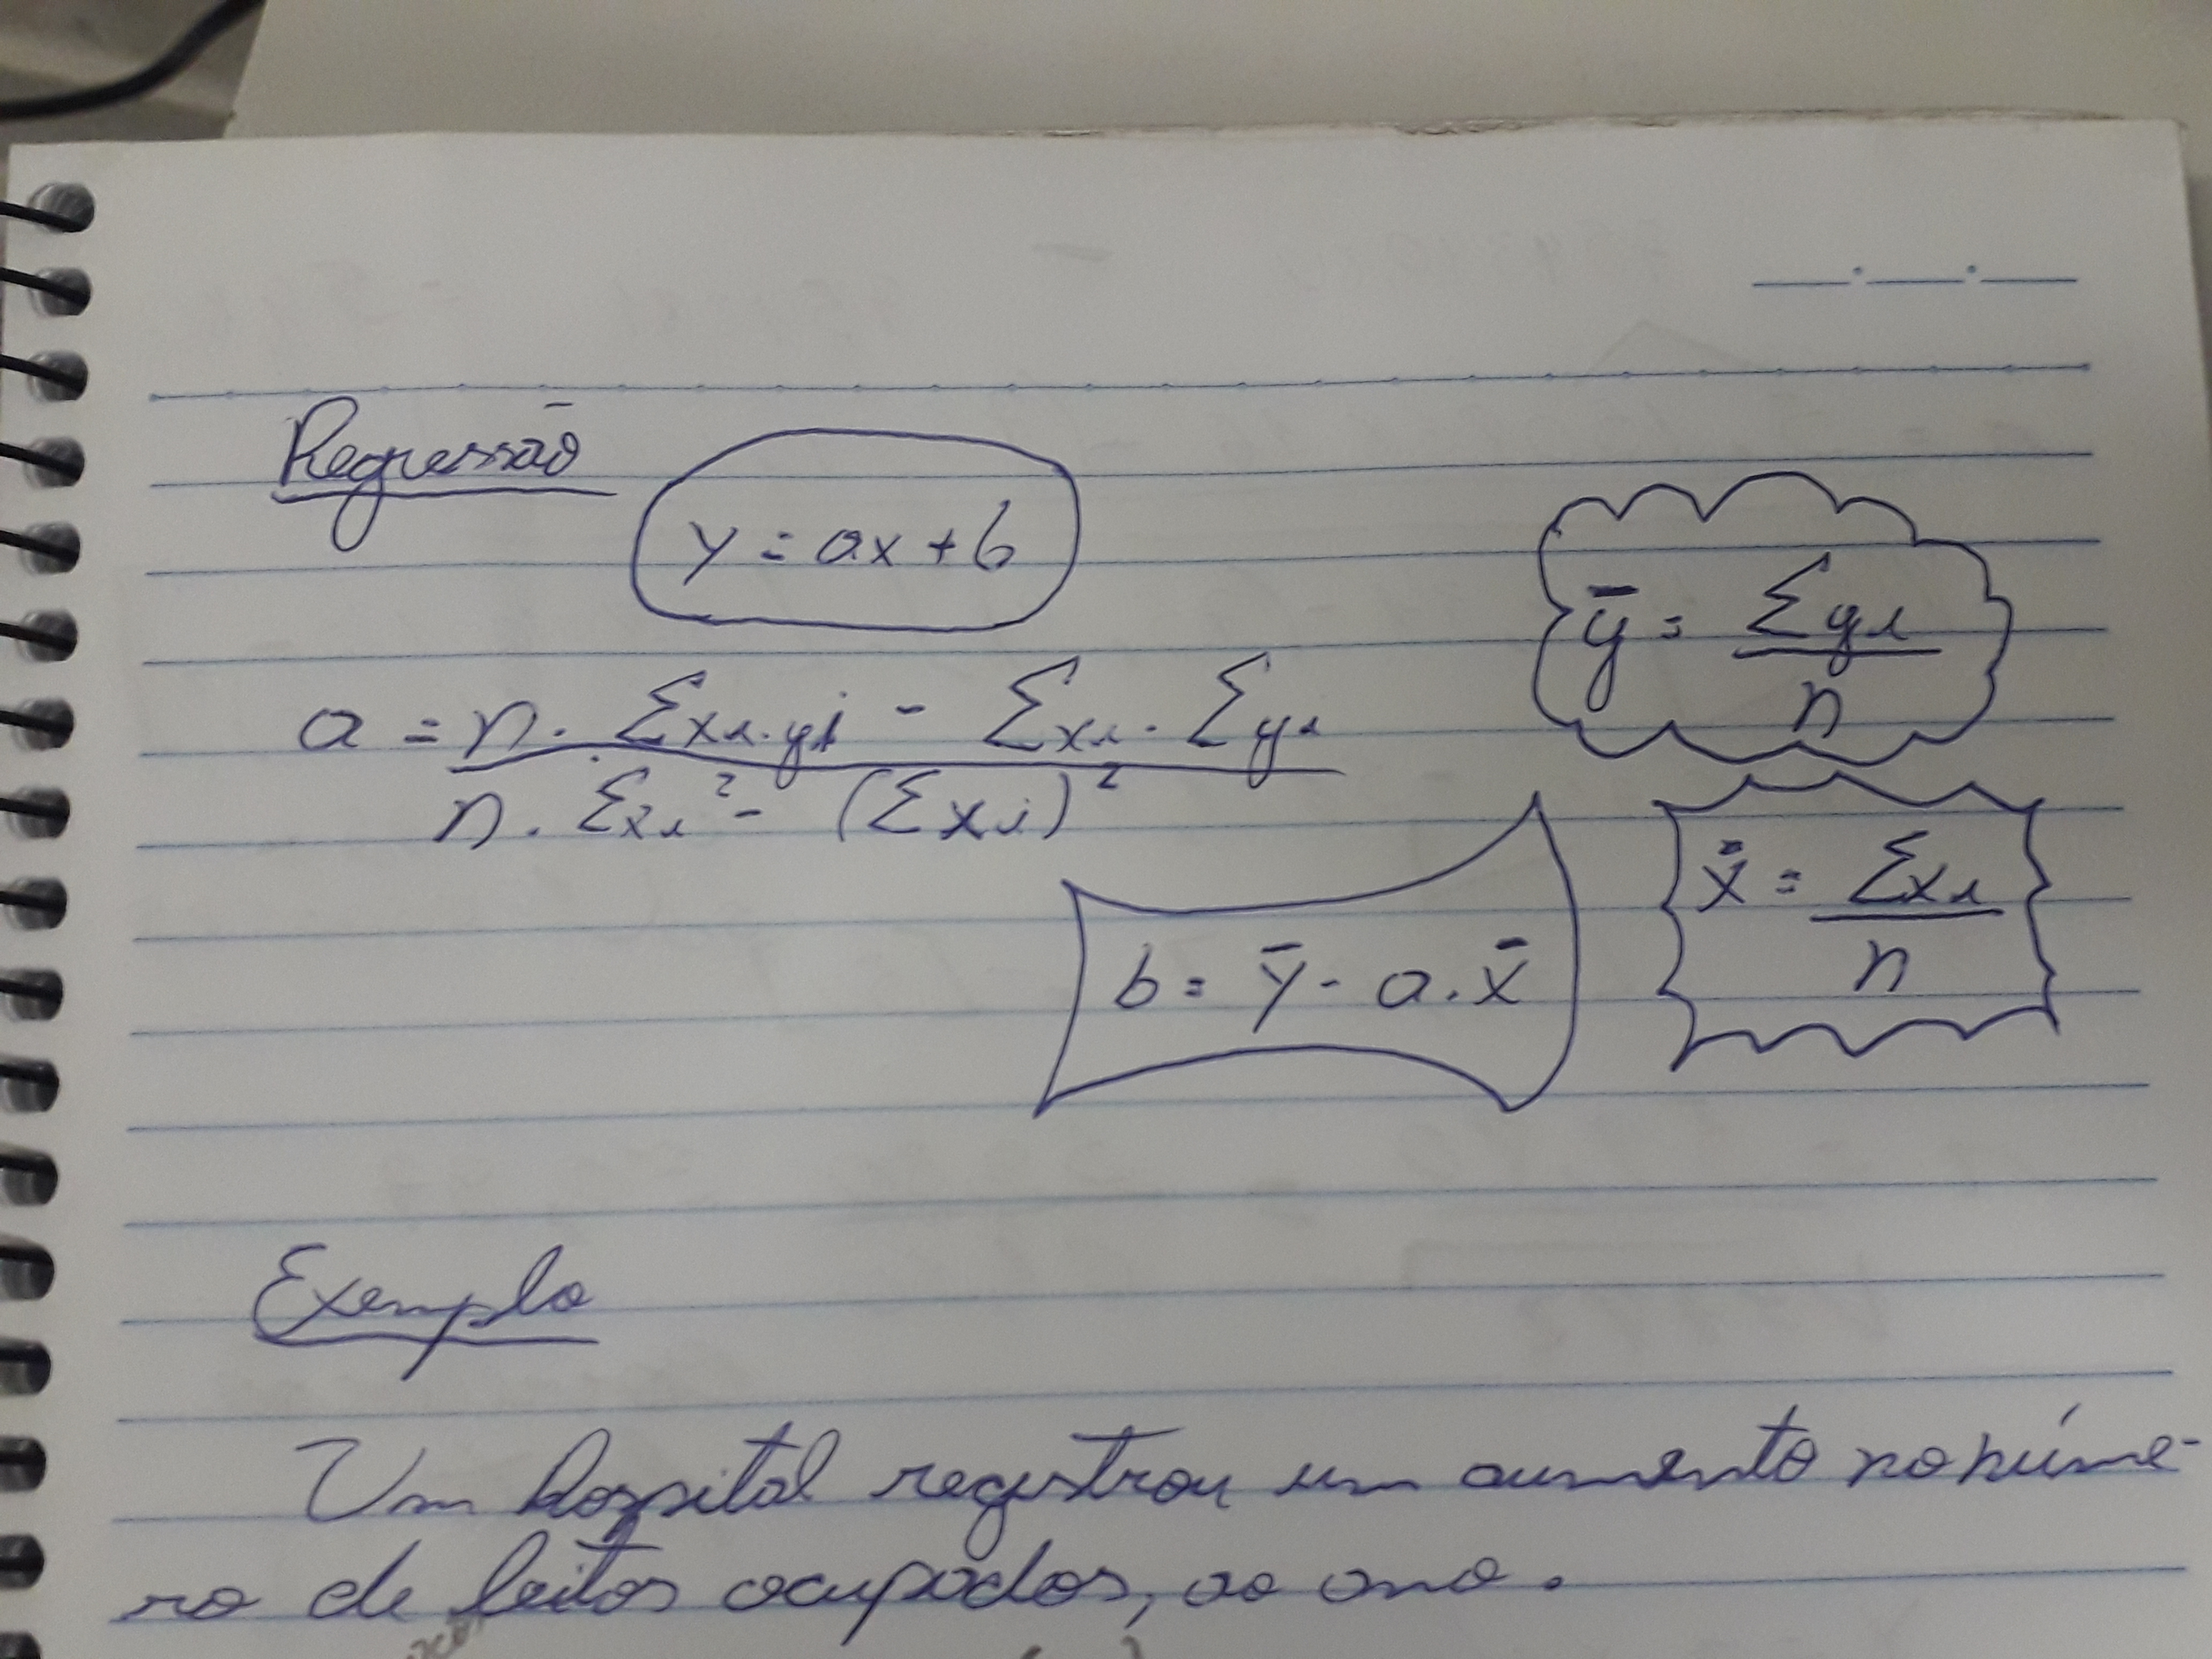 Regressão
y = ax + b
ȳ = Σyi / n
a = n. Σxi.yi - Σxi. Σyi / n. Σxi² - (Σxi)²
x̄ = Σxi / n
b = ȳ - a.x̄
Exemplo
Um hospital registrou um aumento no núme-
ro de leitos ocupados, ao ano.